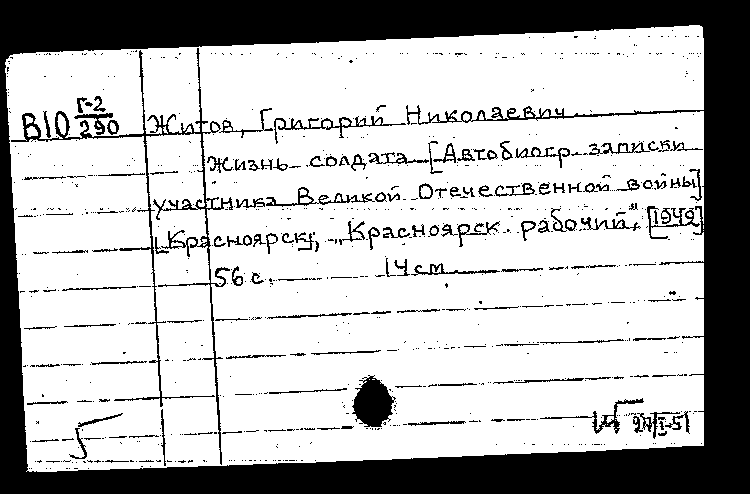 В10 Г-2/290 Житов, Григорий Николаевич
Жизнь солдата [Автобиогр. записки
участника Великой Отечественной войны]
[Красноярск], „Красноярск. рабочий“, [1949]
56 с. 14 см